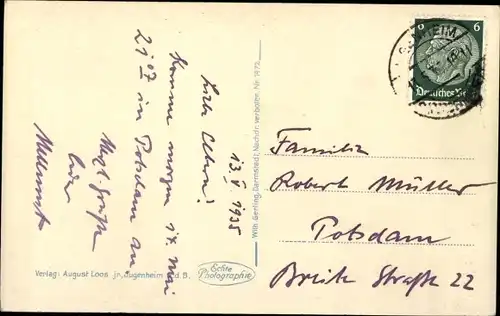 13. V. 1935
Liebe Eltern!
Komme morgen 14. Mai
21 07 in Potsdam an
Herzl. Grüße
Familie
Robert Müller
Potsdam
Breite Straße 22
6
Deutsches Reich
Wilh. Gerling, Darmstadt, Nachdr. verboten. Nr. 1972
Echte
Photographie
Verlag: August Loos jr., Jugenheim a. d. B.